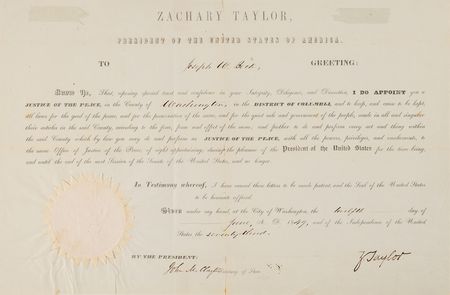 ZACHARY TAYLOR,
PRESIDENT OF THE UNITED STATES OF AMERICA.
TO Joseph W. GREETING:
KNOW YE, That, reposing special trust and confidence in your Integrity, Diligence, and Discretion, I DO APPOINT you a
JUSTICE OF THE PEACE, in the County of Washington, in the DISTRICT OF COLUMBIA, and to keep, and cause to be kept,
all laws for the good of the peace, and for the preservation of the same, and for the quiet rule and government of the people, made in all and singular
their articles in the said County, according to the firm, form and effect of the same, and further to do and perform every act and thing within
the said County which by law you may do and perform as JUSTICE OF THE PEACE, with all the powers, privileges, and emoluments, to
the same Office of Justice of the Peace, of right appertaining, during the pleasure of the President of the United States for the time being,
and until the end of the next Session of the Senate of the United States, and no longer.
In Testimony whereof, I have caused these letters to be made patent, and the Seal of the United States
to be hereunto affixed.
GIVEN under my hand, at the City of Washington, the twelfth day of
June, A. D. 1849, and of the Independence of the United
States the seventy third.
BY THE PRESIDENT: Z. Taylor
John M. Clayton Secretary of State.